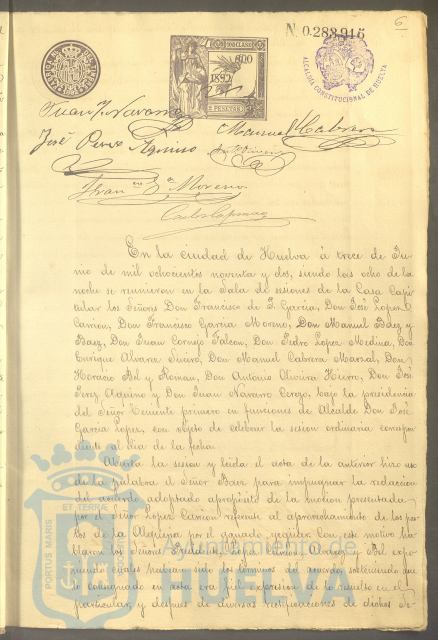 N. 0.288,916
6
ALCALDIA CONSTITUCIONAL DE HUELVA
1892
PESETAS
Juan J. Navarro
Manuel Cabrera
José Perez Aquino
Moreno
En la ciudad de Huelva á trece de Ju-
nio de mil ochocientos noventa y dos, siendo las ocho de la
noche se reunieron en la Sala de sesiones de la Casa Capi-
tular los Señores Don Francisco de P. Garcia, Don José Lopez
Carrion, Don Francisco Garcia Moreno, Don Manuel Baez y
Baez, Don Juan Cornejo Falcon, Don Pedro Lopez Medina, Don
Enrique Alvarez Don Manuel Cabrera Don
Horacio Bel y Roman, Don Antonio Oliveira Hierro, Don José
Perez Aquino y Don Juan Navarro bajo la presidencia
del Señor Teniente primero en funciones de Alcalde Don José
Garcia Lopez, con objeto de celebrar la sesion ordinaria corespon-
diente al dia de la fecha.
Abierta la sesion y leida el acta de la anterior hizo uso
de la palabra el Señor Baez para impugnar la redaccion
del acuerdo adoptado apropósito de la mocion presentada
por el Señor Lopez Carrion referente al aprovechamiento de los pas-
tos de la Alquería por el ganado yeguar. Con este motivo ha-
blaron los señores y Bel expo-
niendo cuales habian sido los terminos del acuerdo, sosteniendo que
lo consignado en acta era fiel expresion de lo resuelto en el
particular, y despues de diversas rectificaciones de dichos Se-
PORTUS MARIS
ET TERRÆ
Ayuntamiento de
HUELVA